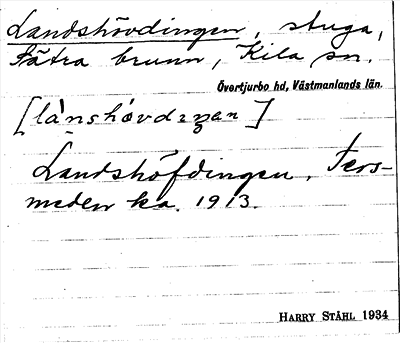 Landshövdingen, stuga,
Sätra brunn, Kila sn.
Övertjurbo hd, Västmanlands län.
[lànshə́vdıŋən]
Landshöfdingen. Ters-
meden ka. 1913.
HARRY STÅHL 1934